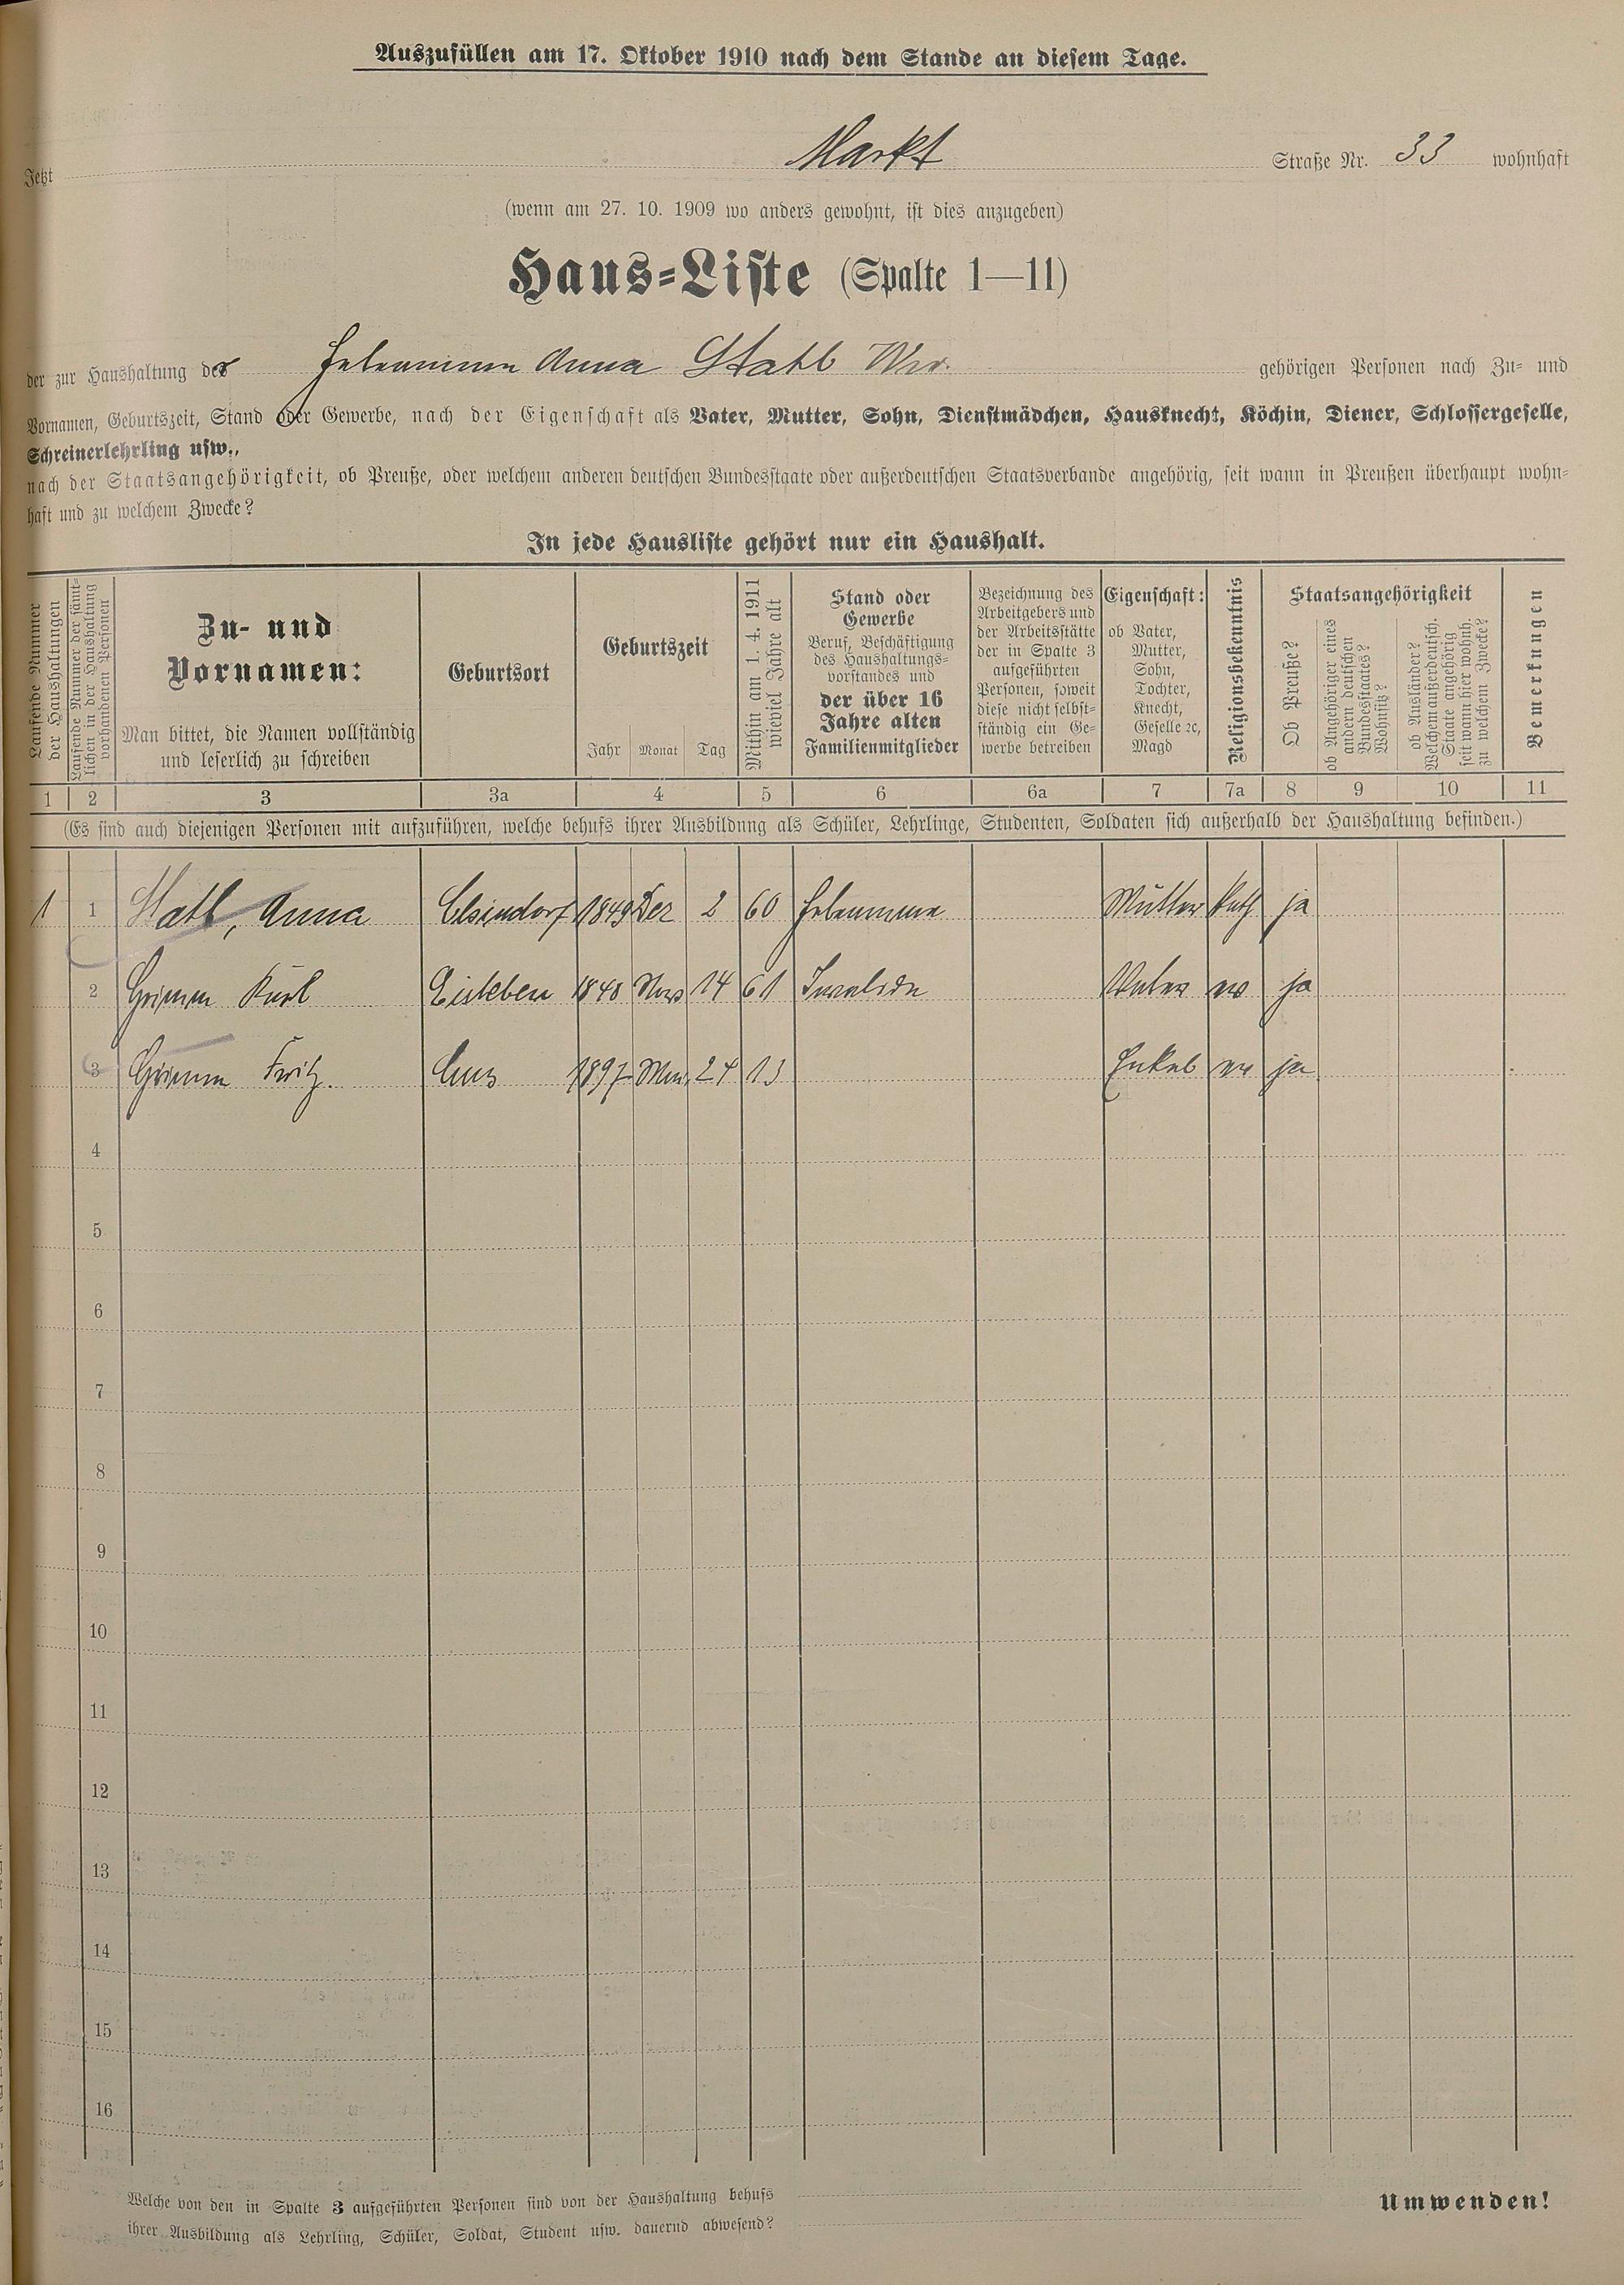 Auszufüllen am 17. Oktober 1910 nach dem Stande an diesem Tage.
Jetzt Markt Straße Nr. 33 wohnhaft
(wenn am 27. 10. 1909 wo anders gewohnt, ist dies anzugeben)
Haus=Liste (Spalte 1—11)
der zur Haushaltung der Hebamme Anna Statl gehörigen Personen nach Zu= und
Vornamen, Geburtszeit, Stand oder Gewerbe, nach der Eigenschaft als Vater, Mutter, Sohn, Dienstmädchen, Hausknecht, Köchin, Diener, Schlossergeselle,
Schreinerlehrling usw.,
nach der Staatsangehörigkeit, ob Preuße, oder welchem anderen deutschen Bundesstaate oder außerdeutschen Staatsverbande angehörig, seit wann in Preußen überhaupt wohn=
haft und zu welchem Zwecke?
In jede Hausliste gehört nur ein Haushalt.
Laufende Nummer
der Haushaltungen
Laufende Nummer der sämt=
lichen in der Haushaltung
vorhandenen Personen
Zu- und
Vornamen:
Man bittet, die Namen vollständig
und leserlich zu schreiben
Geburtsort
Geburtszeit
Jahr Monat Tag
Mithin am 1. 4. 1911
wieviel Jahre alt
Stand oder
Gewerbe
Beruf, Beschäftigung
des Haushaltungs=
vorstandes und
der über 16
Jahre alten
Familienmitglieder
Bezeichnung des
Arbeitgebers und
der Arbeitsstätte
der in Spalte 3
aufgeführten
Personen, soweit
diese nicht selbst=
ständig ein Ge=
werbe betreiben
Eigenschaft:
ob Vater,
Mutter,
Sohn,
Tochter,
Knecht,
Geselle 2c,
Magd
Religionsbekenntnis
Staatsangehörigkeit
Ob Preuße?
ob Angehöriger eines
andern deutschen
Bundesstaates?
Wohnsitz?
ob Ausländer?
Welchem außerdeutsch.
Staate angehörig
seit wann hier wohnh.
zu welchem Zwecke?
Bemerkungen
1 2 3 3a 4 5 6 6a 7 7a 8 9 10 11
(Es sind auch diejenigen Personen mit aufzuführen, welche behufs ihrer Ausbildung als Schüler, Lehrlinge, Studenten, Soldaten sich außerhalb der Haushaltung befinden.)
1 1 Statl, Anna Elsindorf 1849 Dez 2 60 Hebamme Mutter kath ja
2 Grimm Karl Eisleben 1848 Nov 14 61 Invalide Vater ev ja
3 Grimm Fritz. Ems 1897 24 13 Enkel ev ja
4
5
6
7
8
9
10
11
12
13
14
15
16
Welche von den in Spalte 3 aufgeführten Personen sind von der Haushaltung behufs
ihrer Ausbildung als Lehrling, Schüler, Soldat, Student usw. dauernd abwesend?
Umwenden!